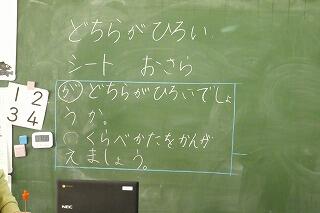 どちらがひろい
シート　おさら
が どちらがひろいでしょ
うか。
くらべかたをかんが
えましょう。
1 2
3 4
NEC